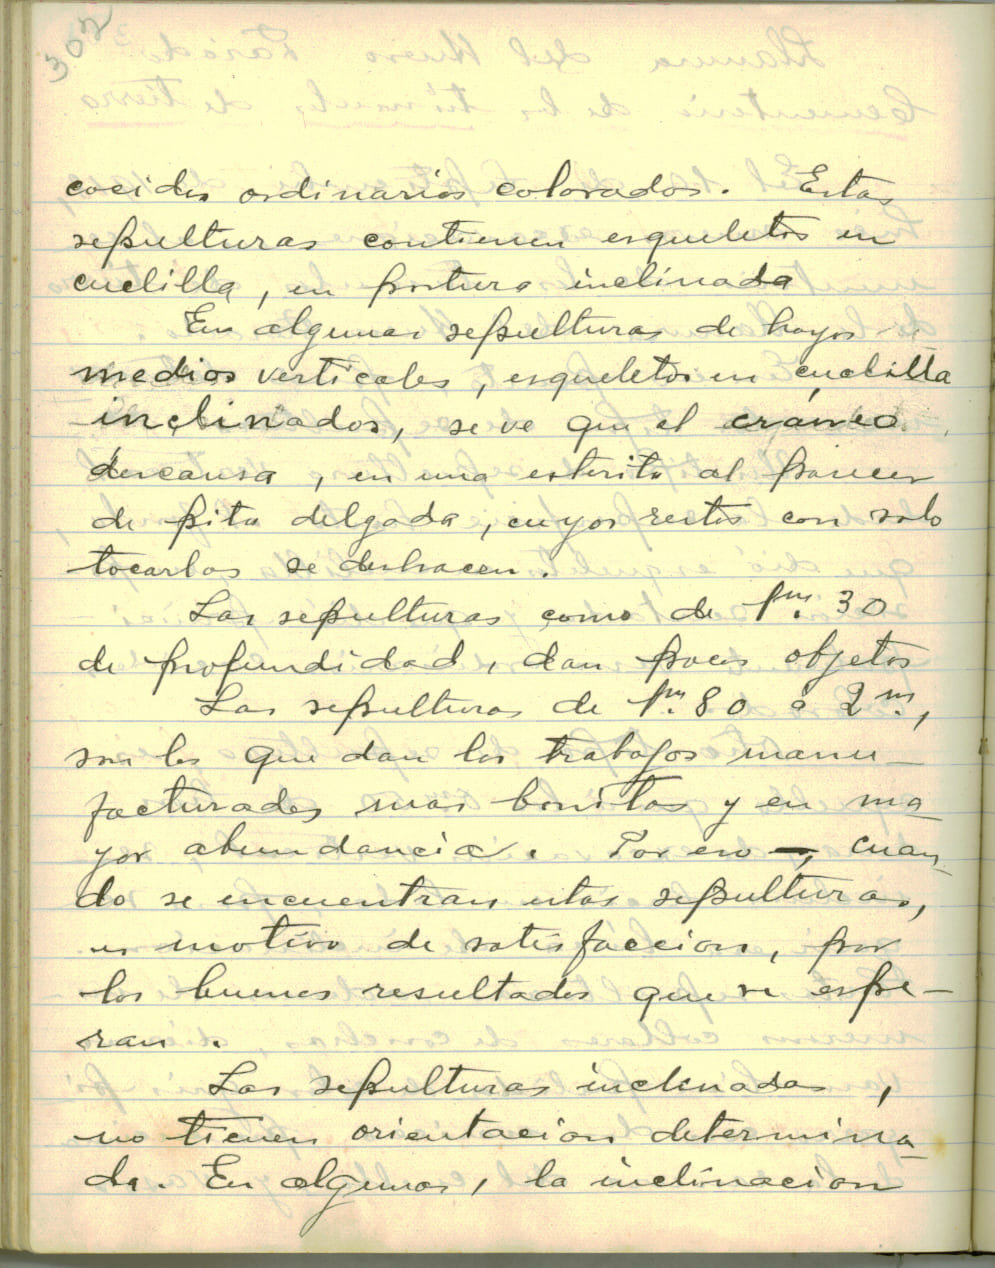 302
cocidos ordinarios colorados. Estas
sepulturas contienen esqueletos en
cuclilla, en postura inclinada
En algunas sepulturas de hoyos
medios verticales, esqueletos en cuclilla
inclinados, se ve que el cráneo
descansa, en una esterita al parecer
de pita delgada, cuyos restos con solo
tocarlos se deshacen.
Las sepulturas como de 1m. 30
de profundidad, dan pocos objetos
Las sepulturas de 1m. 80 a 2m.,
son las que dan los trabajos manu-
facturados mas bonitos y en ma-
yor abundancia. Por eso, cuan-
do se encuentran estas sepulturas,
es motivo de satisfaccion, por
los buenos resultados que se espe-
ran.
Las sepulturas inclinadas,
no tienen orientacion determina-
da. En algunas, la inclinacion